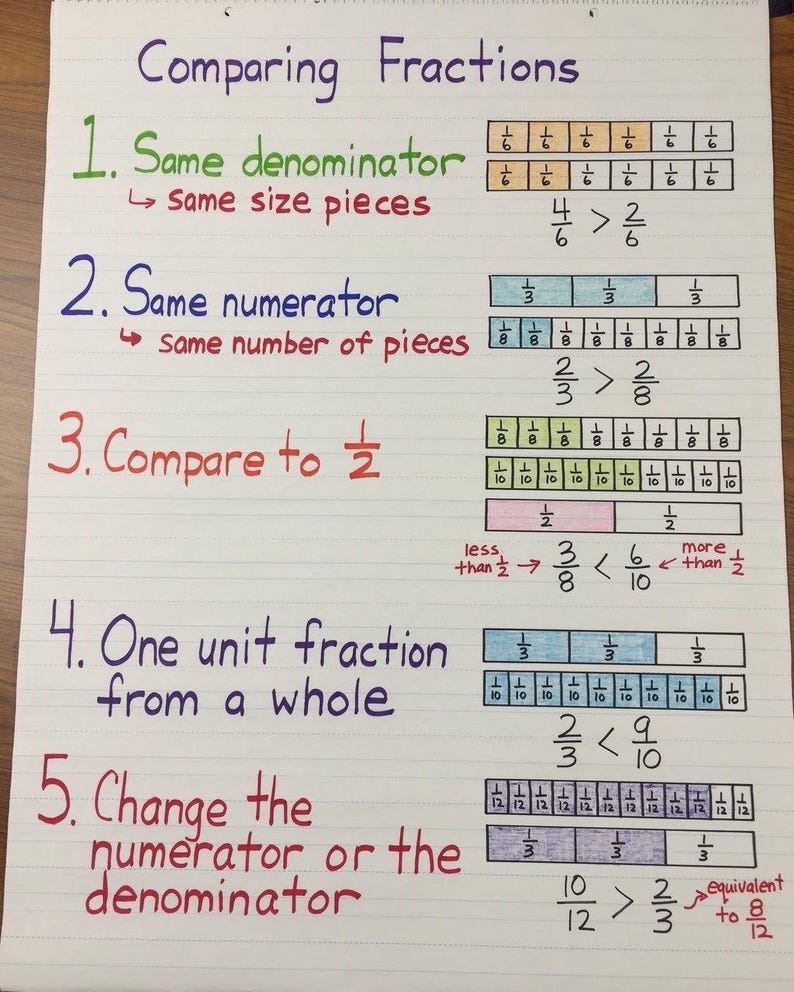 Comparing Fractions
1. Same denominator
↳ same size pieces
1/6 1/6 1/6 1/6 1/6 1/6
1/6 1/6 1/6 1/6 1/6 1/6
4/6 > 2/6
2. Same numerator
↳ same number of pieces
1/3 1/3 1/3
1/8 1/8 1/8 1/8 1/8 1/8 1/8 1/8
2/3 > 2/8
3. Compare to 1/2
1/8 1/8 1/8 1/8 1/8 1/8 1/8 1/8
1/10 1/10 1/10 1/10 1/10 1/10 1/10 1/10 1/10 1/10
1/2 1/2
less than 1/2 → 3/8 < 6/10 ← more than 1/2
4. One unit fraction
from a whole
1/3 1/3 1/3
1/10 1/10 1/10 1/10 1/10 1/10 1/10 1/10 1/10 1/10
2/3 < 9/10
5. Change the
numerator or the
denominator
1/12 1/12 1/12 1/12 1/12 1/12 1/12 1/12 1/12 1/12 1/12
1/3 1/3 1/3
10/12 > 2/3 → equivalent
to 8/12